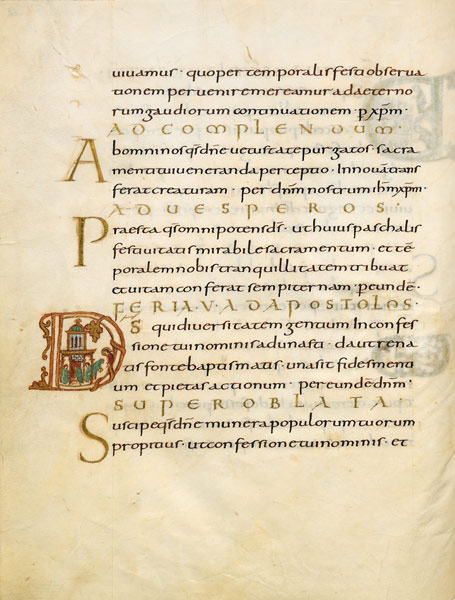 uiuamus · quo per temporalis festi obserua
tionem peruenire mereamur ad aeterno
rum gaudiorum continuationem · p̄ xp̄m ·
AD COMPLENDUM ·
Ab omni nos qs̄ dn̄e uetustate purgatos · sacra
menti tui ueneranda perceptio · In nouam trans
ferat creaturam · per dn̄m nostrum ih̄m xp̄m ·
AD UESPEROS ·
Praesta qs̄ omnipotens ds̄ · ut huius paschalis
festiuitatis mirabile sacramentum · et tē
poralem nobis tranquillitatem tribuat
et uitam conferat sempiternam · p eundē ·
FERIA · V · AD APOSTOLOS ·
Ds̄ qui diuersitatem gentium In confes
sione tui nominis adunasti · da ut rena
tis fonte baptismatis · una sit fides menti
um et pietas actionum · per eundē dn̄m ·
SUPER OBLATA ·
Suscipe qs̄ dn̄e munera populorum tuorum
propitius · ut confessione tui nominis · et